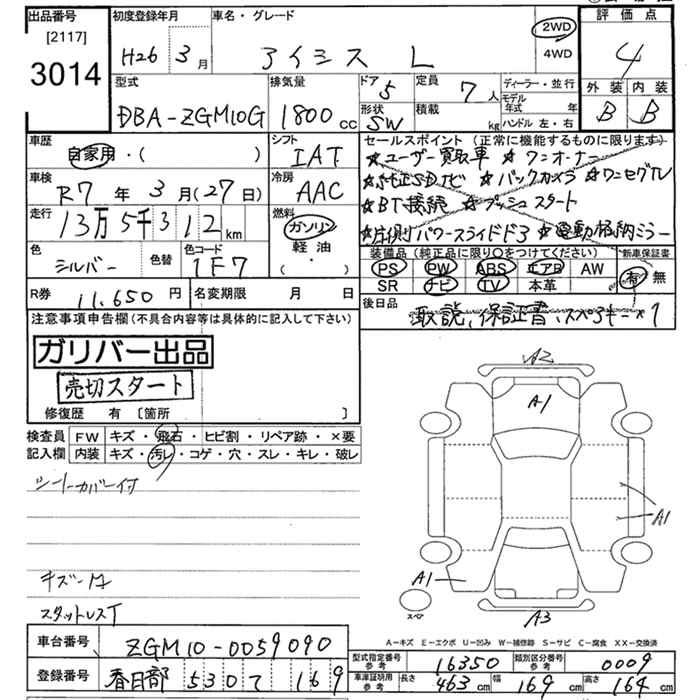 出品番号
[2117]
3014
初度登録年月
H26年3月
車名・グレード
アイシス L
2WD
4WD
評価点
4
外装 内装
B B
型式
DBA-ZGM10G
排気量
1800 cc
ドア
5
形状
SW
定員
7人
積載
kg
ディーラー・並行
モデル年式 年
ハンドル 左・右
車歴
自家用・( )
シフト
IAT
車検
R7年3月(27日)
冷房
AAC
走行
13万5千312km
燃料
ガソリン
軽油
( )
色
シルバー
色替
色コード
1F7
R券
11,650円
名変期限 月 日
セールスポイント(正常に機能するものに限ります)
☆ユーザー買取車 ☆ワンオーナー
☆純正SDナビ ☆バックカメラ ☆ワンセグTV
☆BT接続 ☆プッシュスタート
☆片側パワースライドドア ☆電動格納ミラー
装備品(純正品に限り○をつけてください)
PS PW ABS エアB AW
SR ナビ TV 本革
新車保証書
有 無
後日品
取説、保証書、スペアキー×1
注意事項申告欄(不具合内容等は具体的に記入して下さい)
ガリバー出品
売切スタート
修復歴 有 [箇所 ]
検査員記入欄
FW キズ・飛石・ヒビ割・リペア跡・×要
内装 キズ・汚レ・コゲ・穴・スレ・キレ・破レ
シートカバー付
キズ一
スタットレスT
A2
A1
A1
A1
A3
スペア
A-キズ E-エクボ U-凹み W-補修跡 S-サビ C-腐食 XX-交換済
車台番号
ZGM10-0059090
登録番号
春日部 530 て 169
型式指定番号 参考
16350
類別区分番号 参考
0009
車庫証明用 参考
長さ 463cm 幅 169cm 高さ 164cm